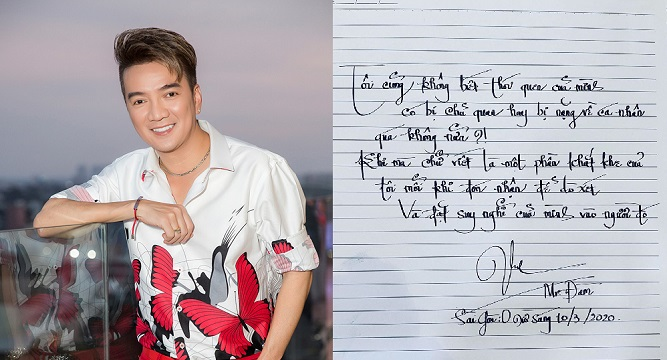 Tôi cũng không biết thói quen của mình
có bị chủ quan hay bị nặng về cá nhân
quá không nữa ?!
Khi mà chữ viết là một phần khắt khe của
tôi mỗi khi đón nhận để dò xét
Và đặt suy nghĩ của mình vào người đó
Mr Đàm
Sài Gòn: sáng 10/3/2020.